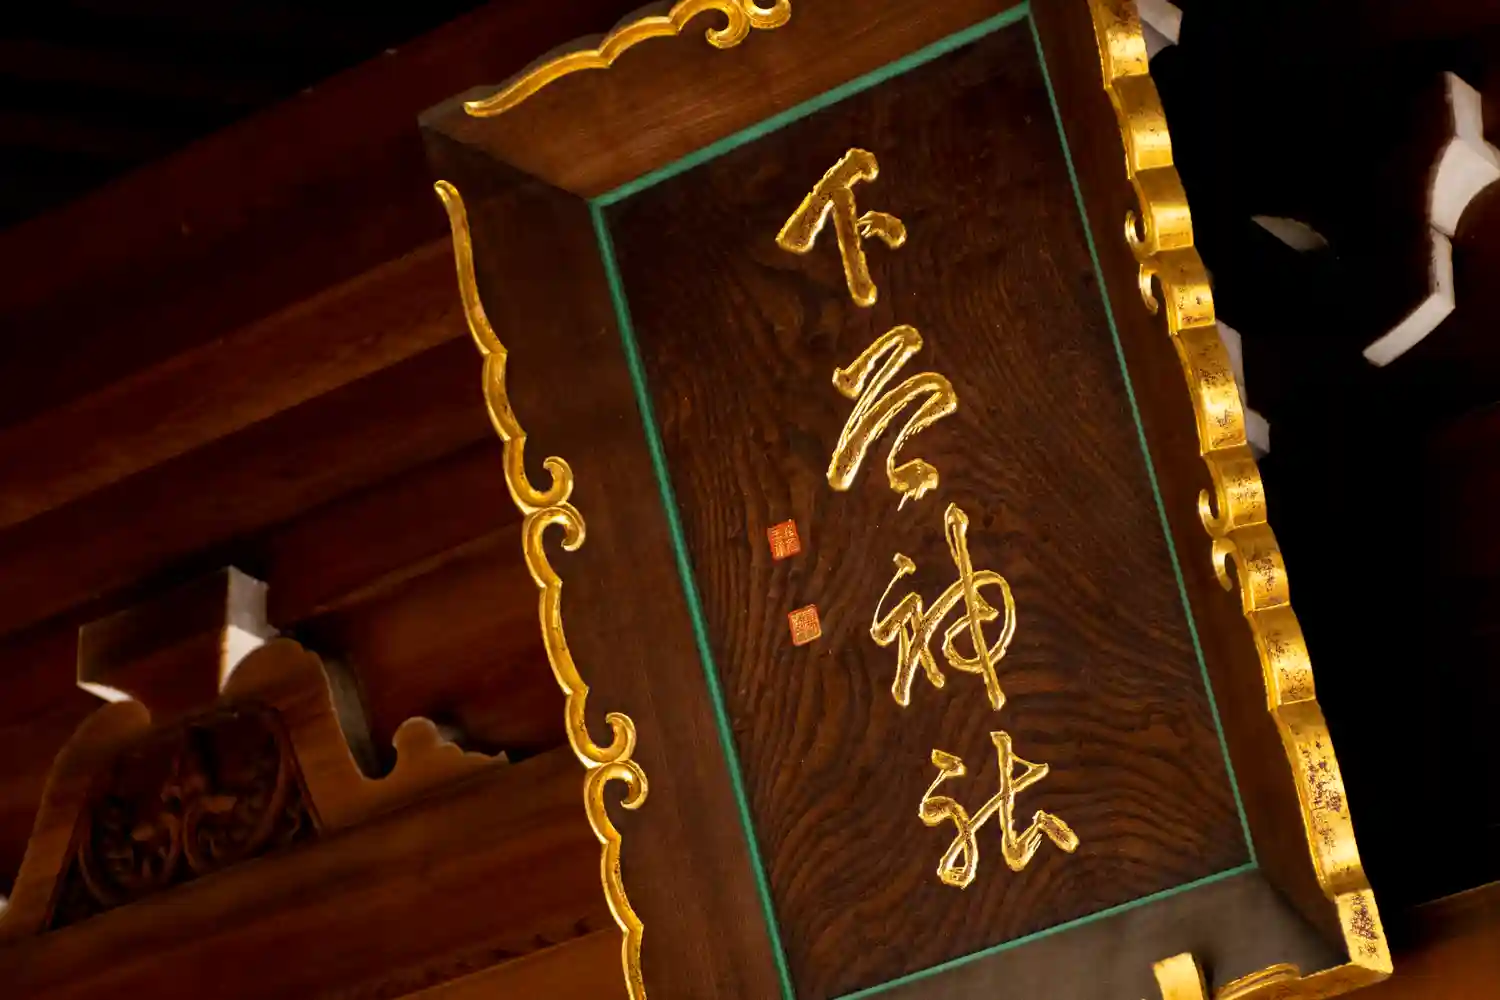 下谷神社